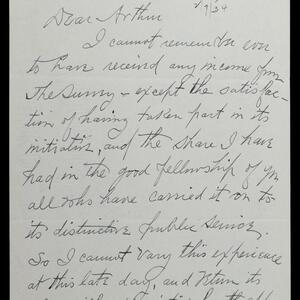 7/34
Dear Arthur
I cannot remember ever
to have received any income from
The Survey – except the satisfac-
tion of having taken part in its
initiative, and the share I have
had in the good fellowship of you
all who have carried it on to
its distinctive public service.
So I cannot vary this experience
at this late day, and return its